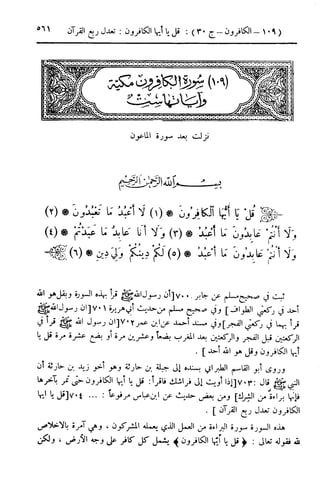 (١٠٩ – الكافرون – ج ٣٠) : قل يا أيها الكافرون : تعدل ربع القرآن ٥٦١
(١٠٩) سورة الكافرون مكية
وآياتها ست
نزلت بعد سورة الماعون
بسم الله الرحمن الرحيم
قُلْ يَا أَيُّهَا الْكَافِرُونَ * (١) لَا أَعْبُدُ مَا تَعْبُدُونَ * (٢)
وَلَا أَنْتُمْ عَابِدُونَ مَا أَعْبُدُ * (٣) وَلَا أَنَا عَابِدٌ مَا عَبَدْتُمْ * (٤)
وَلَا أَنْتُمْ عَابِدُونَ مَا أَعْبُدُ * (٥) لَكُمْ دِينُكُمْ وَلِيَ دِينِ * (٦)
ثبت في صحيح مسلم عن جابر ٧٠٠[أن رسول الله ﷺ قرأ بهذه السورة وبقل هو الله
أحد في ركعتي الطواف] وفي صحيح مسلم من حديث أبي هريرة ٧٠١[أن رسول الله ﷺ
قرأ بهما في ركعتي الفجر] وفي مسند أحمد عن ابن عمر ٧٠٢[ان رسول الله ﷺ قرأ في
الركعتين قبل الفجر والركعتين بعد المغرب بضعاً وعشرين مرة أو بضع عشرة مرة قل يا
أيها الكافرون وقل هو الله أحد ] .
وروى أبو القاسم الطبراني بسنده إلى جبلة بن حارثة وهو أخو زيد بن حارثة أن
النبي ﷺ قال : ٧٠٣[إذا أويت إلى فراشك فاقرأ : قل يا أيها الكافرون حتى تمر بآخرها
فإنها براءة من الشرك] ومن بعض حديث عن ابن عباس مرفوعاً : ... ٧٠٤[قل يا أيها
الكافرون تعدل ربع القرآن ] .
هذه السورة سورة البراءة من العمل الذي يعمله المشركون ، وهي آمرة بالاخلاص
لله فقوله تعالى : ﴿ قل يا أيها الكافرون ﴾ يشمل كل كافر على وجه الأرض ، ولكن